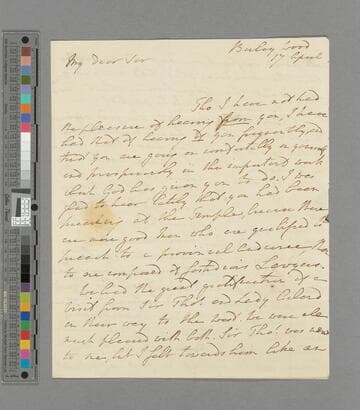 My Dear Sir
17 April
Tho I have not had
the pleasure of hearing from you, I have
had that of hearing of you frequently, and
that you are going on comfortably in yourself
and prosperously in the important work
that God has given you to do. I was
glad to hear lately that you had been
preaching at the Temple, because there
are many good Men who are qualified to
preach to a provincial audience
to one composed of Lawyers.
We had the great gratification of a
visit from Sir Thos. and Lady
on their way to the west. We were all
much pleased with both. Sir Thos. was new
to me, but I felt towards him like an